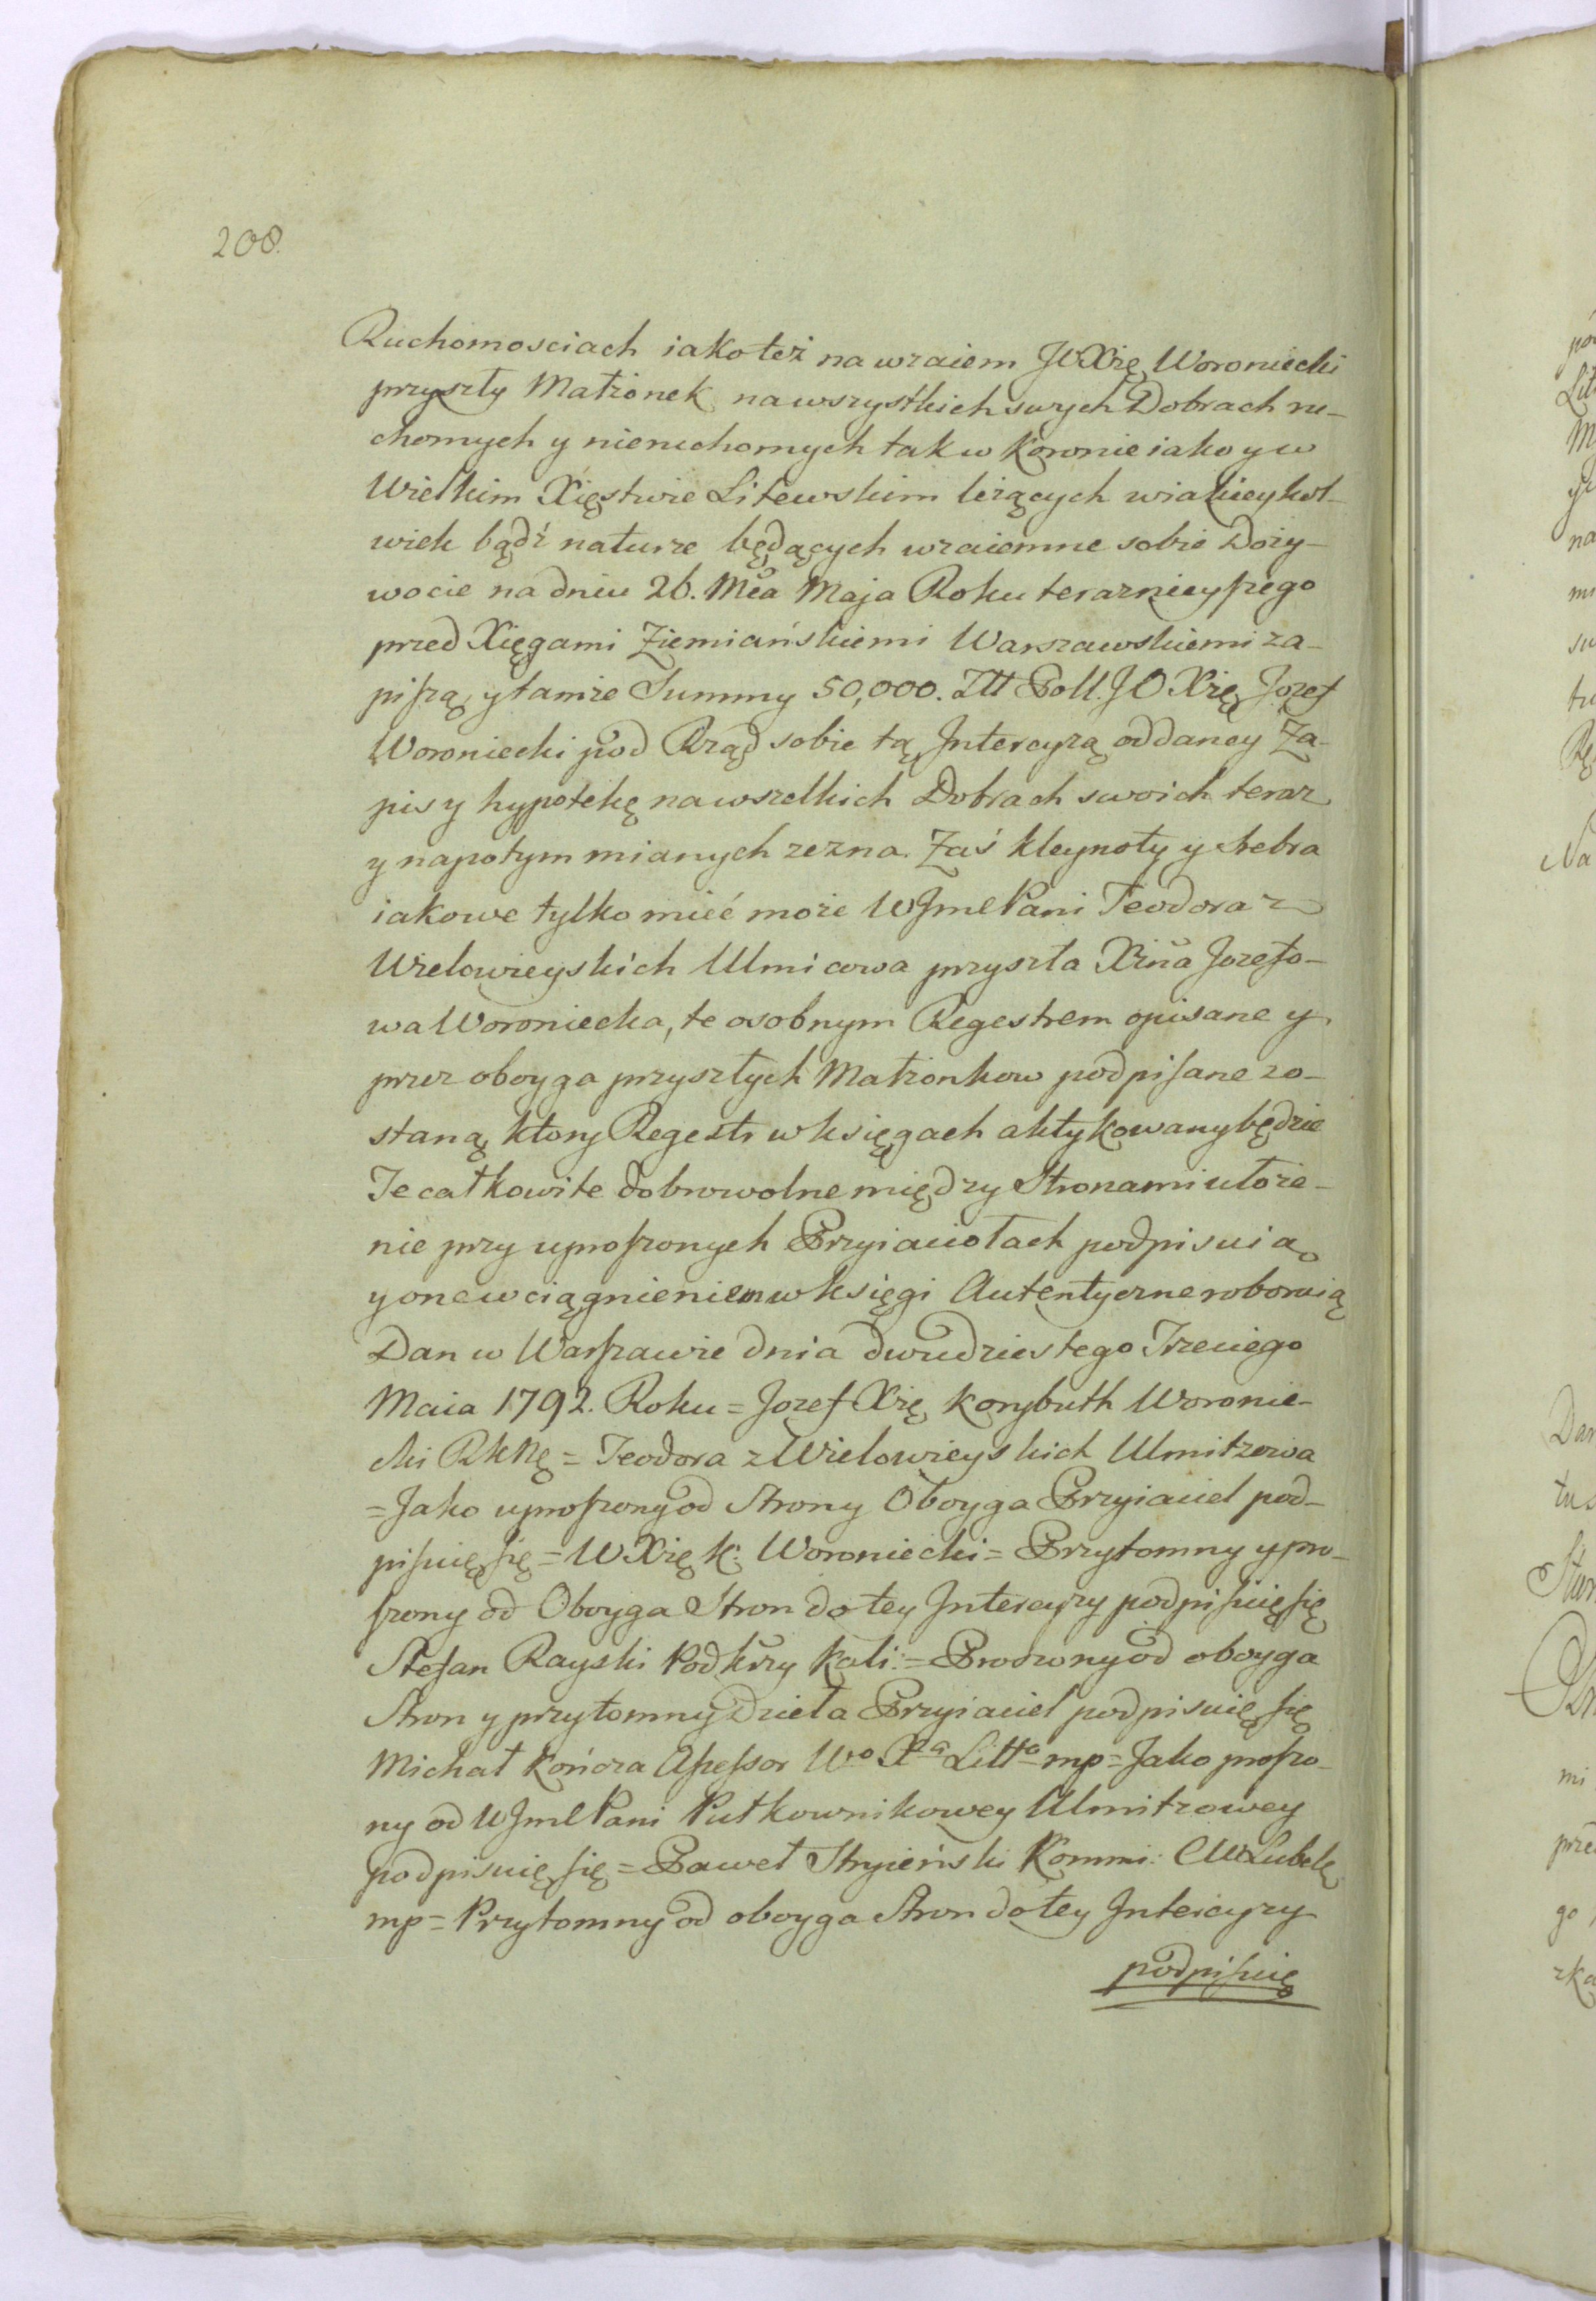 208.
Ruchomosciach iako też na wzaiem JW Xżę Woroniecki
przyszły Małżonek na wszystkich swych Dobrach ru-
chomych y nieruchomych tak w Koronie iako y w
Wielkim Xięstwie Litewskim leżących w iakieykol-
wiek bądź naturze będących wzaiemne sobie Doży-
wocie na dniu 26. Mca Maja Roku teraznieyszego
przed Xięgami Ziemiańskiemi Warszawskiemi za-
piszą, y tamże Summy 50,000. Złł Poll. JO Xżę Jozef
Woroniecki pod Rząd sobie tą Intercyzą oddaney Za-
pis y hypotekę na wszelkich Dobrach swoich teraz
y napotym mianych zezna. Zaś kleynoty y srebra
iakowe tylko mieć może WJmć Pani Teodora z
Wielowieyskich Ulmicowa przyszła Xżna Jozefo-
wa Woroniecka, te osobnym Regestrem opisane y
przez oboyga przyszłych Małżonkow podpisane zo-
staną, ktory Regestr w księgach aktykowany będzie
Te całkowite dobrowolne między Stronami ułoże-
nie przy uproszonych Przyiaciołach podpisuią
y one wciągnieniem w księgi Autentyczne roboruią
Dan w Warszawie dnia dwudziestego Trzeciego
Maia 1792. Roku = Jozef Xżę Korybuth Woronie-
cki = Teodora z Wielowieyskich Ulmitzowa
= Jako uproszony od Strony Oboyga Przyiaciel pod-
pisuię się = W Xżę K: Woroniecki = Przytomny y pro-
szony od Oboyga Stron do tey Intercyzy podpisuię się
Stefan Rayski Podkrzy Kali: = Proszony od oboyga
Stron y przytomny Dzieła Przyiaciel podpisuię się
Michał Kończa Assessor Wo Xa Litto mp = Jako proszo-
ny od WJmć Pani Pułkownikowey Ulmitzowey
podpisuię się = Paweł Stryieński Kommi: CW Lubelę
mp = Przytomny od oboyga Stron do tey Intercyzy
podpisuię